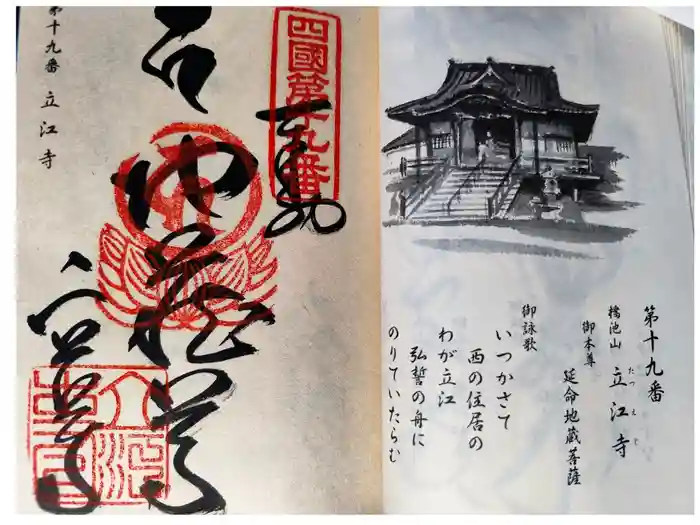 第十九番
橋池山 立江寺
たつえじ
御本尊
延命地蔵菩薩
御詠歌
いつかさて
西の住居の
わが立江
弘誓の舟に
のりていたらむ
四國第十九番
奉納
第十九番 立江寺
立江寺